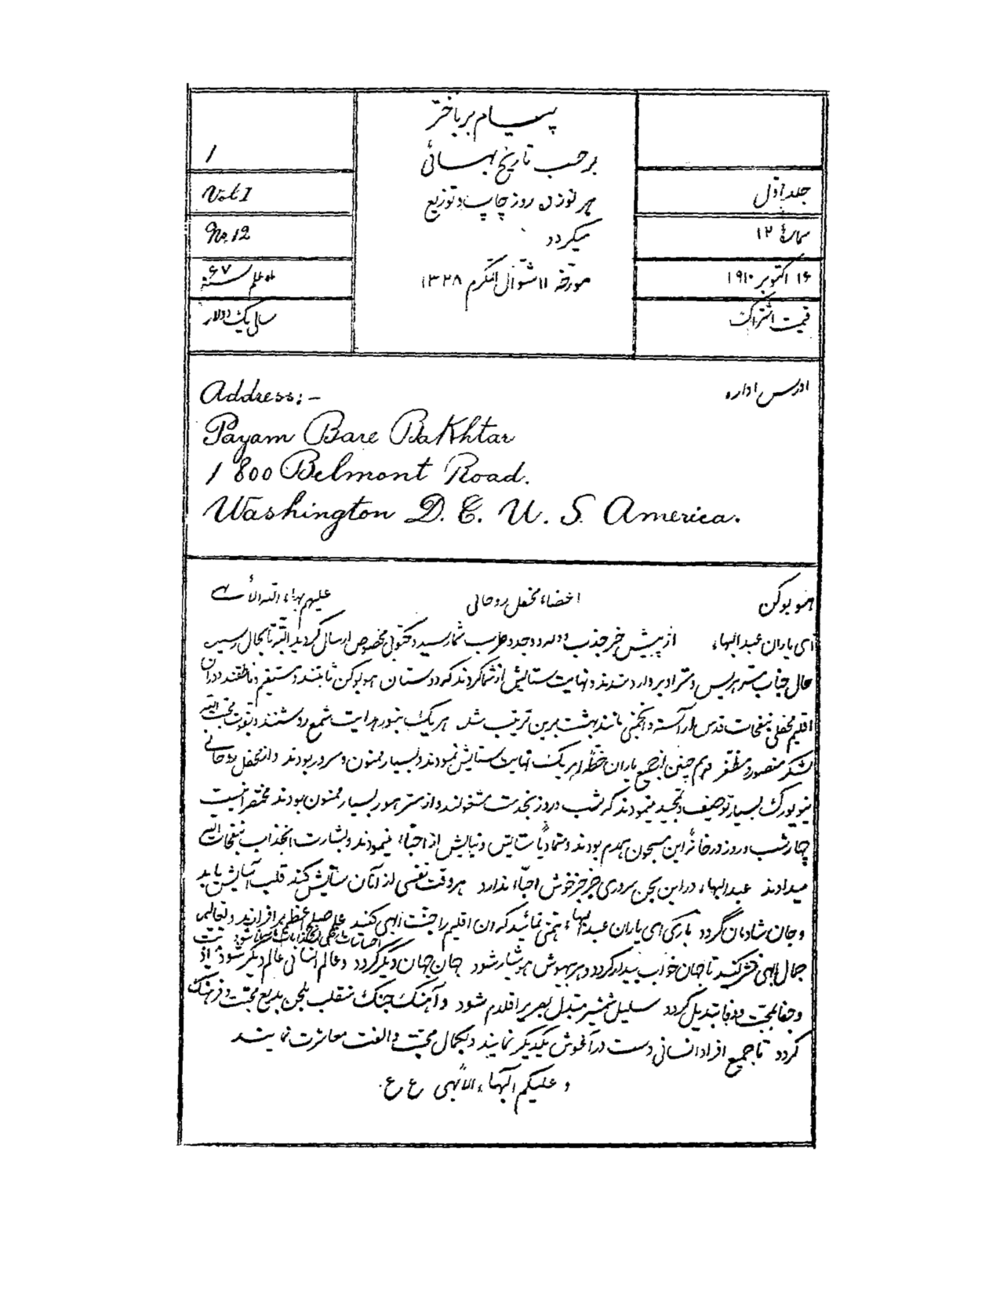 پیام برباختر
برحسب تاریخ بهائی
هر نوزده روز چاپ و توزیع
میگردد
مورخهٔ ۱۱ شوّال المکرّم ۱۳۲۸
1
Vol I
No. 12
ماه علم سنه ۶۷
سالی یک دولار
جلد اوّل
نمرهٔ ۱۲
۱۶ اکتوبر ۱۹۱۰
قیمت اشتراک
ادرس اداره
Address:-
Payam Bare Bakhtar
1800 Belmont Road.
Washington D. C. U. S. America.
هوبوکن اعضاء محفل روحانی علیهم بهاء الله الأبهی
ای یاران عبدالبهاء از پیش خبر جذب و وله و وجد و طرب شما رسید و مکتوبی مخصوص ارسال گردید البته تا بحال رسیده
حال جناب مستر هریس و مستر اد وارد شدند و نهایت ستایش از شما کردند که دوستان هوبوکن ثابتند و مستقیم و ناطقند و در آن
اقلیم محفلی بنفحات قدس آراسته و انجمنی مانند بهشت برین ترتیب شد هر یک بنور هدایت شمع روشنند و بقوت محبت الله
لشکر منصور و مظفر و همچنین از جمیع یاران خطهٔ امریک نهایت ستایش نمودند و بسیار ممنون و مسرور بودند و از محفل روحانی
نیویورک بسیار توصیف و تمجید مینمودند که شب و روز بخدمت مشغولند و از مستر هور بسیار ممنون بودند مختصر اینست
چهار شب و روز در خانهٔ این مسجون همدم بودند و متمادیاً ستایش و نیایش از احبّاء مینمودند و بشارت انجذاب بنفحات الهی
میدادند عبدالبهاء در این سجن سروری جز خبر خوش احبّاء ندارد هر وقت نفسی از آنان ستایش کند قلب آسایش یابد
و جان شادمان گردد باری ای یاران عبدالبهاء همتی نمائید که آن اقلیم را جنت ابهی کنید علم صلح اعظم برافرازید و تعالیم
جمال ابهی منتشر کنید تا جهان خواب بیدار گردد و هر بیهوش هوشیار شود جهان جهان دیگر گردد و عالم انسانی عالم دیگر شود
و جفا بمحبت و وفا تبدیل گردد سلیل شمشیر مبدّل بصریر اقلام شود و آهنگ جنگ منقلب بلحن بدیع محبت و فرهنگ
گردد تا جمیع افراد انسانی دست در آغوش یکدیگر نمایند و بکمال محبت و الفت معاشرت نمایند
و علیکم البهاء الأبهی ع ع